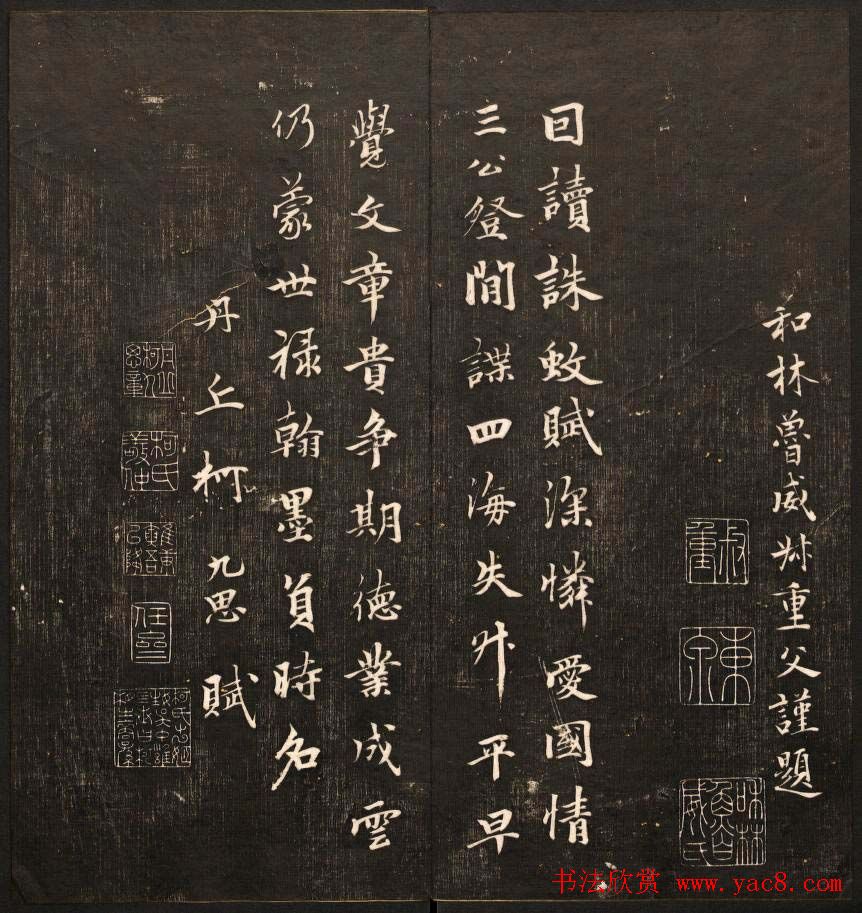 和林魯威叔重父謹題
叔重
東泉
囙讀誅蚊賦深憐愛國情
三公登間諜四海失升平早
覺文章貴争期德業成雲
仍蒙世禄翰墨負時名
丹丘柯九思賦
柯氏敬仲
书法欣赏 www.yac8.com